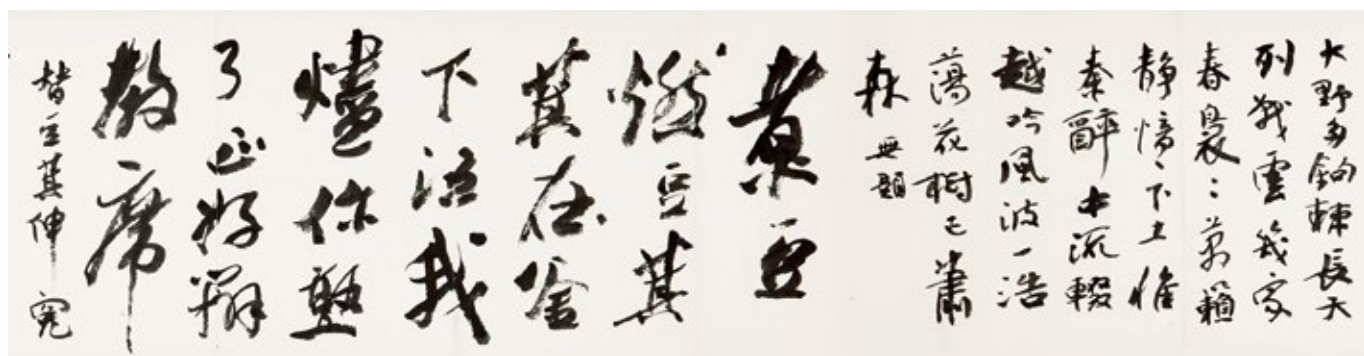 大野多鉤棘長天
列戰雲幾家
春裊〻萬籟
靜愔〻下土惟
秦醉中流輟
越吟風波一浩
蕩花樹已蕭
森 無題
煮豆
燃豆萁
萁在釜
下泣我
燼你熟
了正好辦
教席
替豆萁伸冤